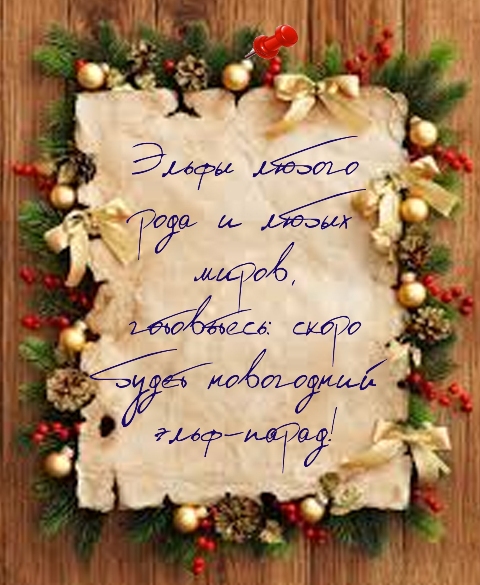 Эльфы любого
рода и любых
миров,
готовьтесь: скоро
будет новогодний
эльф-парад!